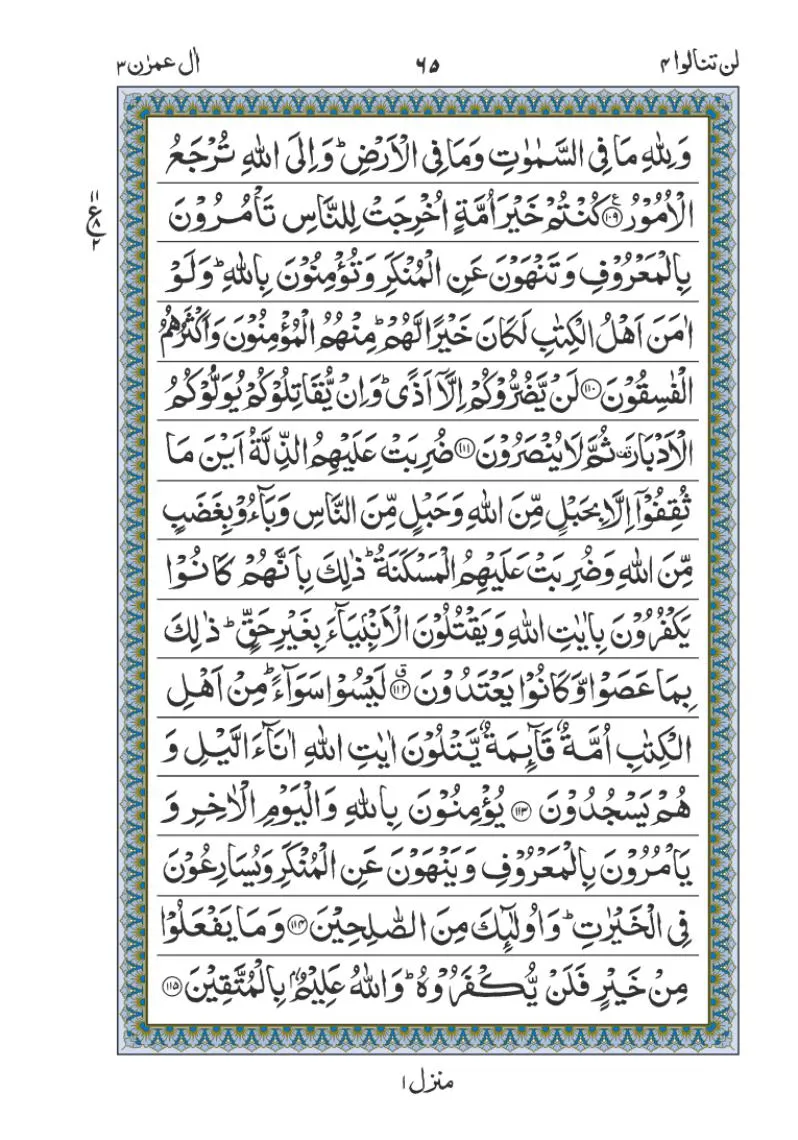 لن تنالوا ۴
۶۵
اٰل عمرٰن ۳
وَلِلّٰهِ مَا فِي السَّمٰوٰتِ وَمَا فِي الْاَرْضِ ؕ وَاِلَى اللّٰهِ تُرْجَعُ
الْاُمُوْرُ ۧ﴿۱۰۹﴾ كُنْتُمْ خَيْرَ اُمَّةٍ اُخْرِجَتْ لِلنَّاسِ تَاْمُرُوْنَ
۱۱ ع ۸ ۲
بِالْمَعْرُوْفِ وَتَنْهَوْنَ عَنِ الْمُنْكَرِ وَتُؤْمِنُوْنَ بِاللّٰهِ ؕ وَلَوْ
اٰمَنَ اَهْلُ الْكِتٰبِ لَكَانَ خَيْرًا لَّهُمْ ؕ مِنْهُمُ الْمُؤْمِنُوْنَ وَاَكْثَرُهُمُ
الْفٰسِقُوْنَ ﴿۱۱۰﴾ لَنْ يَّضُرُّوْكُمْ اِلَّاۤ اَذًى ؕ وَاِنْ يُّقَاتِلُوْكُمْ يُوَلُّوْكُمُ
الْاَدْبَارَ ۟ قف ثُمَّ لَا يُنْصَرُوْنَ ﴿۱۱۱﴾ ضُرِبَتْ عَلَيْهِمُ الذِّلَّةُ اَيْنَ مَا
ثُقِفُوْۤا اِلَّا بِحَبْلٍ مِّنَ اللّٰهِ وَحَبْلٍ مِّنَ النَّاسِ وَبَآءُوْ بِغَضَبٍ
مِّنَ اللّٰهِ وَضُرِبَتْ عَلَيْهِمُ الْمَسْكَنَةُ ؕ ذٰلِكَ بِاَنَّهُمْ كَانُوْا
يَكْفُرُوْنَ بِاٰيٰتِ اللّٰهِ وَيَقْتُلُوْنَ الْاَنْۢبِيَآءَ بِغَيْرِ حَقٍّ ؕ ذٰلِكَ
بِمَا عَصَوْا وَّكَانُوْا يَعْتَدُوْنَ ۗق﴿۱۱۲﴾ لَيْسُوْا سَوَآءً ؕ مِنْ اَهْلِ
الْكِتٰبِ اُمَّةٌ قَآئِمَةٌ يَّتْلُوْنَ اٰيٰتِ اللّٰهِ اٰنَآءَ الَّيْلِ وَ
هُمْ يَسْجُدُوْنَ ﴿۱۱۳﴾ يُؤْمِنُوْنَ بِاللّٰهِ وَالْيَوْمِ الْاٰخِرِ وَ
يَاْمُرُوْنَ بِالْمَعْرُوْفِ وَيَنْهَوْنَ عَنِ الْمُنْكَرِ وَيُسَارِعُوْنَ
فِي الْخَيْرٰتِ ؕ وَاُولٰٓئِكَ مِنَ الصّٰلِحِيْنَ ﴿۱۱۴﴾ وَمَا يَفْعَلُوْا
مِنْ خَيْرٍ فَلَنْ يُّكْفَرُوْهُ ؕ وَاللّٰهُ عَلِيْمٌۢ بِالْمُتَّقِيْنَ ﴿۱۱۵﴾
منزل ۱